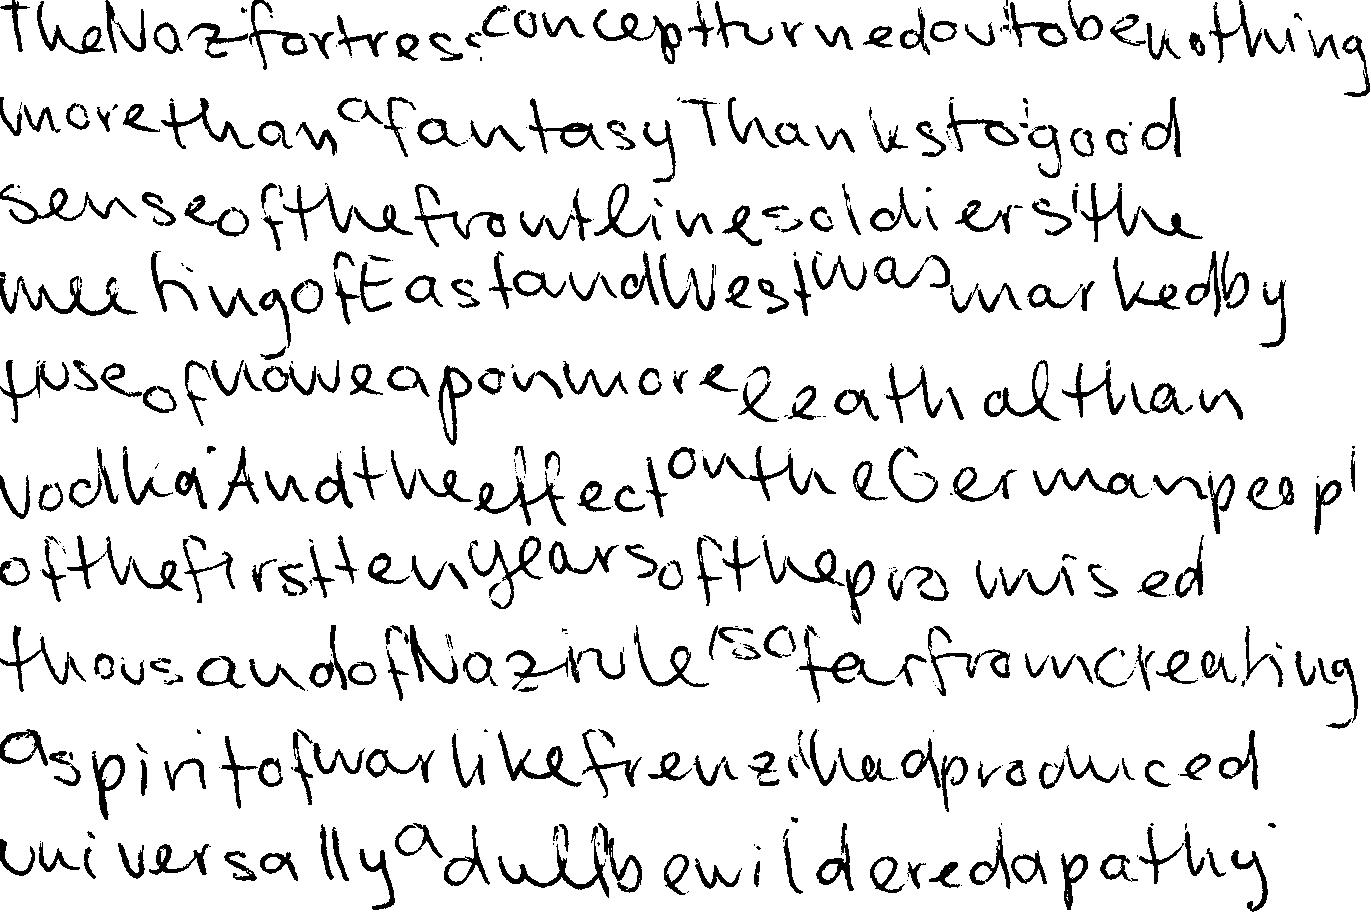 The Nazi fortress concept turned out to be nothing
more than a fantasy Thanks to good
sense of the frontline soldiers' the
meeting of East and West was marked by
t use of no weapon more leathal than
vodka And the effect on the German peopl
of the first ten years of the promised
thousand of Nazi rule, so far from creating
a spirit of warlike frenzi had produced
universally a dull bewildered apathy